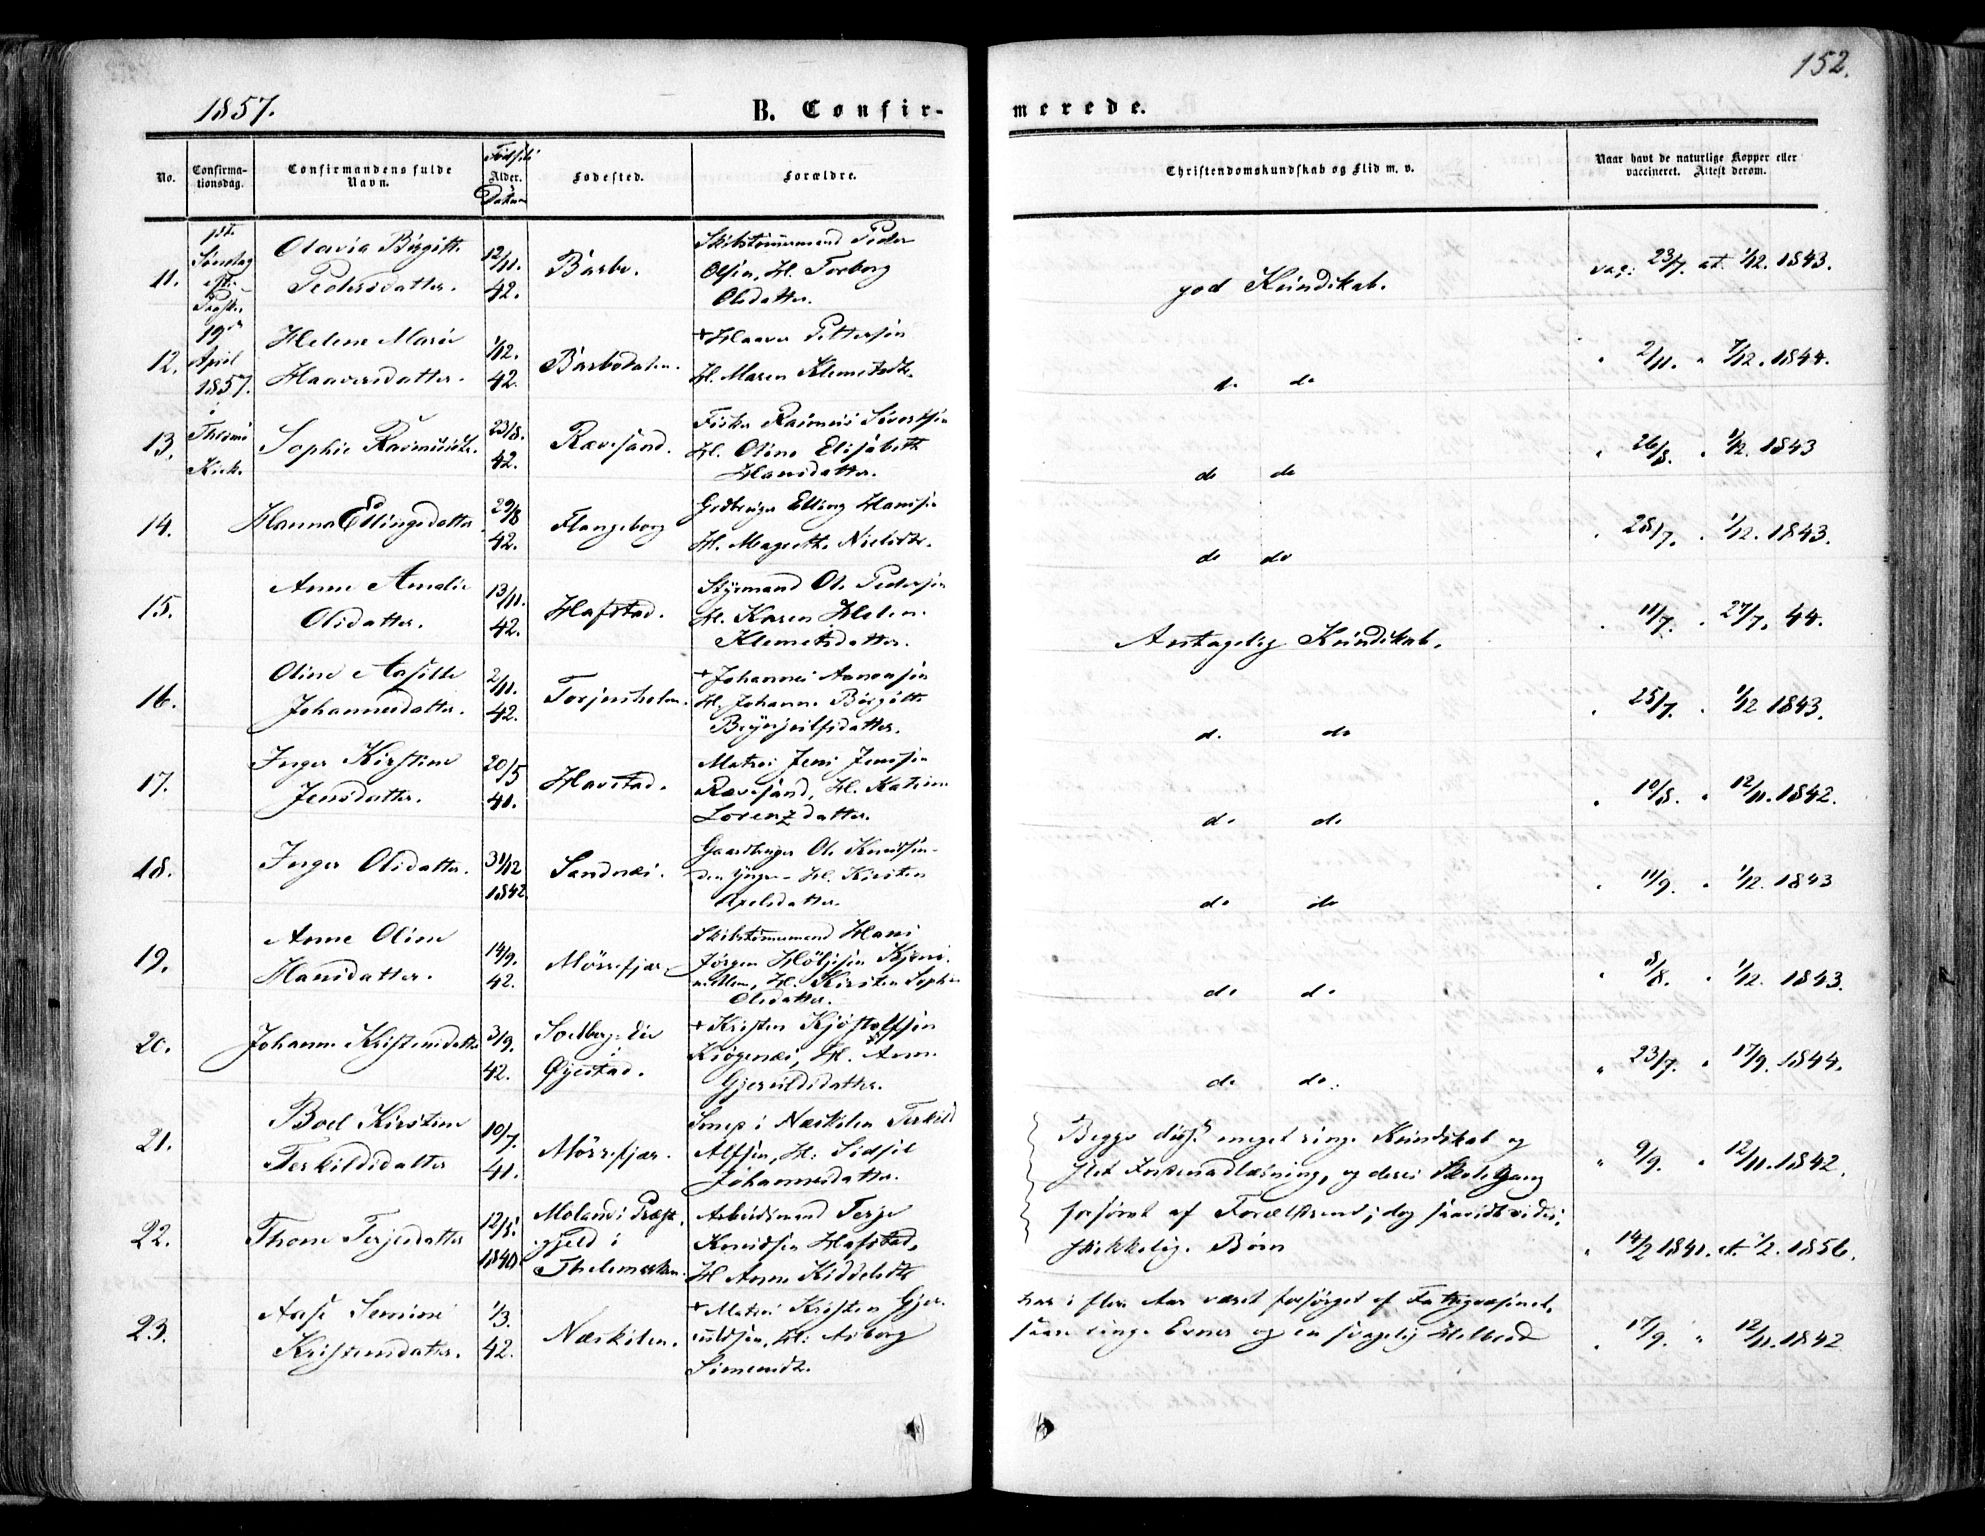 152.
1857.
B. Confir-
merede.
No.
Confirma-
tionsdag.
Confirmandens fulde
Navn.
Fødsels
Alder.
Datum
Fødested.
Forældre.
Christendomskundskab og Flid m. v.
Naar havt de naturlige Kopper eller
vaccineret. Attest derom.
1st
Søndag
eft.
Paaske
19de
April
1857.
i
Thromø
Kirke
11.
Olavia Birgitte
Pedersdatter.
12/11.
42.
Barbo.
Skibstømmermand Peder
Olsen, H. Torborg
Olsdatter.
god Kundskab.
vac: 23/7. at. 1/12. 1843.
12.
Helene Marie
Haaversdatter.
1/12.
42.
Barbodalen.
+Haaver Pettersen
H. Maren Klemetsdt.
d. do
" 2/11. " 7/12. 1844.
13.
Sophie Rasmusdt.
23/8.
42.
Rævesand.
Fisker Rasmus Sivertsen
H. Oline Elisabeth
Hansdatter.
do do
" 26/8. " 1/12. 1843
14.
Hanna Ellingsdatter
29/8
42.
Flangeborg
Grdbruger Elling Hansen
H. Magrethe Nielsdt.
do do
" 28/7. " 1/12. 1843.
15.
Anne Amalie
Olsdatter.
13/11.
42.
Hafstad.
Styrmand Ole Pedersen
H. Karen Helene
Klemetsdatter.
Antagelig Kundskab.
" 11/7. " 27/7. 44.
16.
Oline Aasille
Johannesdatter.
2/11.
42.
Torjusholmen.
+Johannes Aanonsen
H. Johanne Birgitte
Brynjulfsdatter.
d. do
" 25/7. " 1/12 1843.
17.
Inger Kirstine
Jensdatter.
20/5
41.
Havstad.
Matros Jens Jensen
Rævesand, H. Katrine
Lorenzdatter.
do do.
" 10/8. " 12/11. 1842.
18.
Inger Olsdatter.
31/12
1842.
Sandnæs.
Gaardbruger Ole Knudsen
den Yngre - H. Kirsten
Axelsdatter.
do do
" 11/9. " 1/12. 1843
19.
Anne Oline
Hansdatter.
14/9.
42.
Mörrefjær.
Skibstømmermand Hans
Jørgen
H. Kirsten Sophie
Olsdatter.
do do
" 8/8. " 1/12. 1843.
20.
Johanne Kristensdatter
3/9.
42.
i
Øyestad.
+ Kristen Kjøstolfsen
H. Anne
Gjeruldsdatter.
do do.
" 23/7. " 17/9. 1844.
21.
Boel Kirstine
Terkildsdatter
10/7.
41.
Mörrefjær.
i Næskilen Terkild
Alfsen, H: Sidsel
Johannesdatter.
Begge disse meget ringe Kundskab og
slet Indenadlæsning, og deres Skolegang
forsömt af Forældrene; dog saavidt vides,
skikkelige Børn
" 9/9. " 12/11. 1842.
22.
Thone Terjesdatter
12/5.
1840.
Molands Præste-
gjeld i
Thelemarken.
Arbeidsmand Terje
Knudsen Hafstad,
H Anne Kiddelsdt
" 14/2 1841. at 1/2. 1856.
23.
Aase Semine
Kristensdatter.
1/3.
42.
Næskilen.
+ Matros Kristen Gjer-
uldsen, H: Asborg
Simonsdt.
Har i flere Aar været forsørget af Fattigvæsenet,
Evner og en svagelig Helbred
" 17/9. " 12/11. 1842